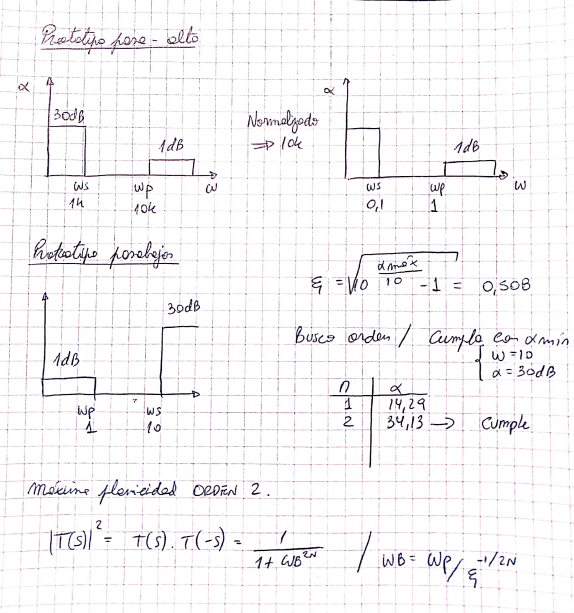 Prototipo pasa-alto
α
30dB
1dB
ws
1k
wp
10k
w
Normalizado
⇒ 10k
α
1dB
ws
0,1
wp
1
w
Prototipo pasabajos
1dB
30dB
wp
1
ws
10
ξ = √(10^(αmáx/10) - 1) = 0,508
Busco orden / Cumpla con αmín
{ w = 10
α = 30dB
n | α
1 | 14,29
2 | 34,13 → Cumple
máxima planicidad ORDEN 2.
|T(s)|² = T(s) . T(-s) = 1 / (1 + WB^2N) / WB = Wp / ξ^-1/2N